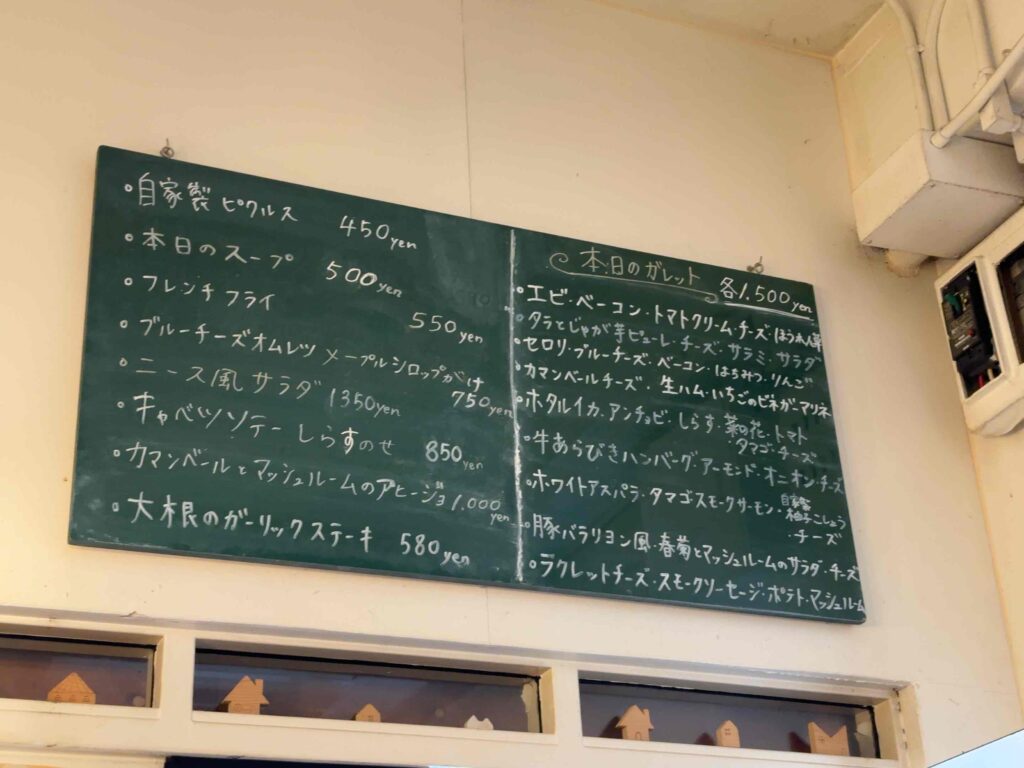 ・自家製ピクルス 450yen
・本日のスープ 500yen
・フレンチフライ 550yen
・ブルーチーズオムレツ メープルシロップがけ
750yen
・ニース風サラダ 1350yen
・キャベツソテー しらすのせ 850yen
・カマンベールとマッシュルームのアヒージョ 1,000
yen
・大根のガーリックステーキ 580yen
本日のガレット 各1.500yen
・エビ・ベーコン・トマトクリーム・チーズ・ほうれん草
・タラとじゃが芋ピューレ・チーズ・サラミ・サラダ
・セロリ・ブルーチーズ・ベーコン・はちみつ・りんご
・カマンベールチーズ・生ハム・いちごのビネガーマリネ
・ホタルイカ・アンチョビ・しらす・菜の花・トマト
タマゴ・チーズ
・牛あらびきハンバーグ・アーモンド・オニオン・チーズ
・ホワイトアスパラ・タマゴスモークサーモン・自家製柚子こしょう
・チーズ
・豚バラリヨン風・春菊とマッシュルームのサラダ・チーズ
・ラクレットチーズ・スモークソーセージ・ポテト・マッシュルーム